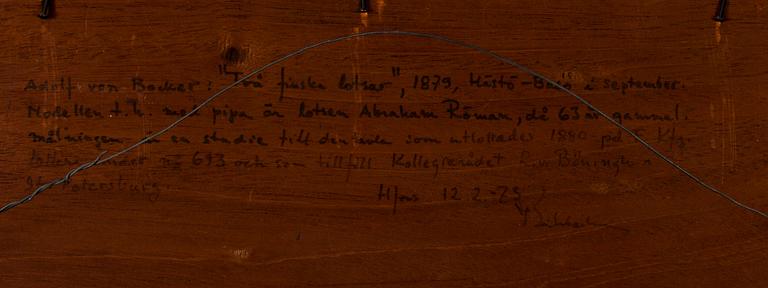 Adolf von Becker: "Två finska lotsar", 1879, Hästö-Busö i september.
Modellen t.h. med pipa är lotsen Abraham Röman, då 63 år gammal.
målningen är en studie till den tavla som utlottades 1880 på F. Kfg.
lotteri nåd på 693 och som tillföll Kollegierådet R. v. Böningh
St. Petersburg.
Hfors 12.2.-25